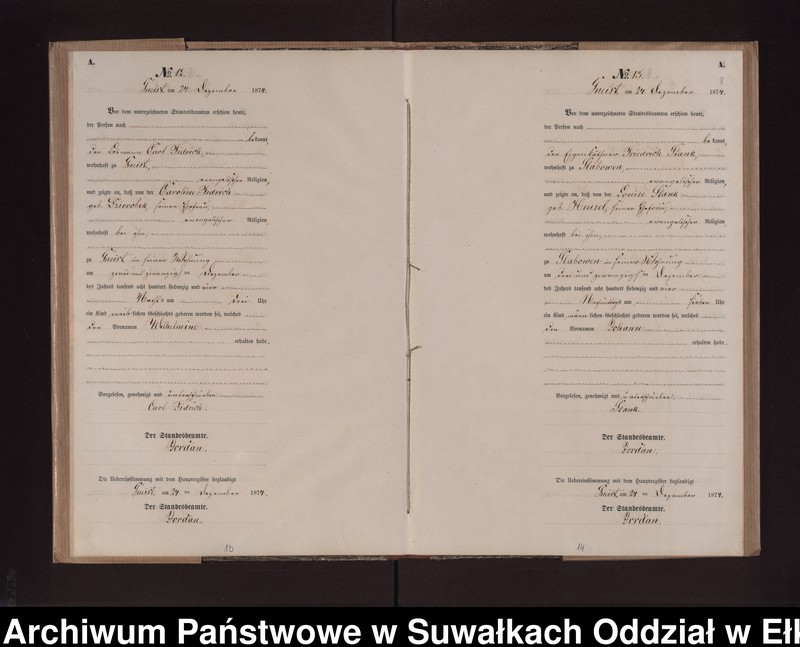 A.
No. 12.
Gneist am 24 Dezember 1874.
Vor dem unterzeichneten Standesbeamten erschien heute,
der Person nach
bekannt,
der Losmann Carl Jedrich,
wohnhaft zu Gneist,
evangelischer Religion,
und zeigte an, daß von der Caroline Jedrich
geb. seiner Ehefrau,
evangelischer Religion,
wohnhaft bei ihm,
zu Gneist in seiner Wohnung
am zwei und zwanzigsten Dezember
des Jahres tausend acht hundert siebenzig und vier
Nachts um drei Uhr
ein Kind weiblichen Geschlechts geboren worden sei, welches
den Vornamen Wilhelmine
erhalten habe.
Vorgelesen, genehmigt und unterschrieben
Carl Jedrich.
Der Standesbeamte.
Jordan.
Die Uebereinstimmung mit dem Hauptregister beglaubigt
Gneist am 24 ten Dezember 1874.
Der Standesbeamte.
Jordan.
13
A.
No. 13.
Gneist am 24 Dezember 1874.
Vor dem unterzeichneten Standesbeamten erschien heute,
der Person nach
bekannt,
der Eigenkäthner Friedrich Skank,
wohnhaft zu Slabowen,
evangelischer Religion,
und zeigte an, daß von der Louise Skank
geb. Hensel, seiner Ehefrau,
evangelischer Religion,
wohnhaft bei ihm,
zu Slabowen in seiner Wohnung
am drei und zwanzigsten Dezember
des Jahres tausend acht hundert siebenzig und vier
Nachmittags um sieben Uhr
ein Kind männlichen Geschlechts geboren worden sei, welches
den Vornamen Johann
erhalten habe.
Vorgelesen, genehmigt und unterschrieben
Skank.
Der Standesbeamte.
Jordan.
Die Uebereinstimmung mit dem Hauptregister beglaubigt
Gneist am 24 ten Dezember 1874.
Der Standesbeamte.
Jordan.
14
Archiwum Państwowe w Suwałkach Oddział w Ełk